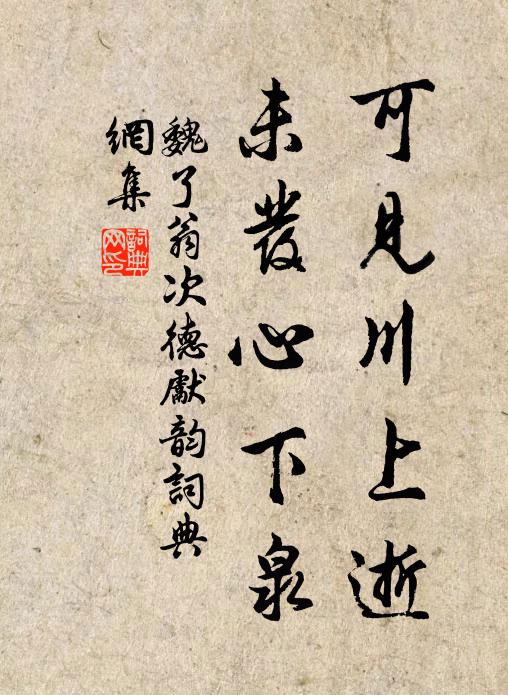 可見川上逝
未發心下泉
魏了翁次德獻韵詞典
網集
詞典網印